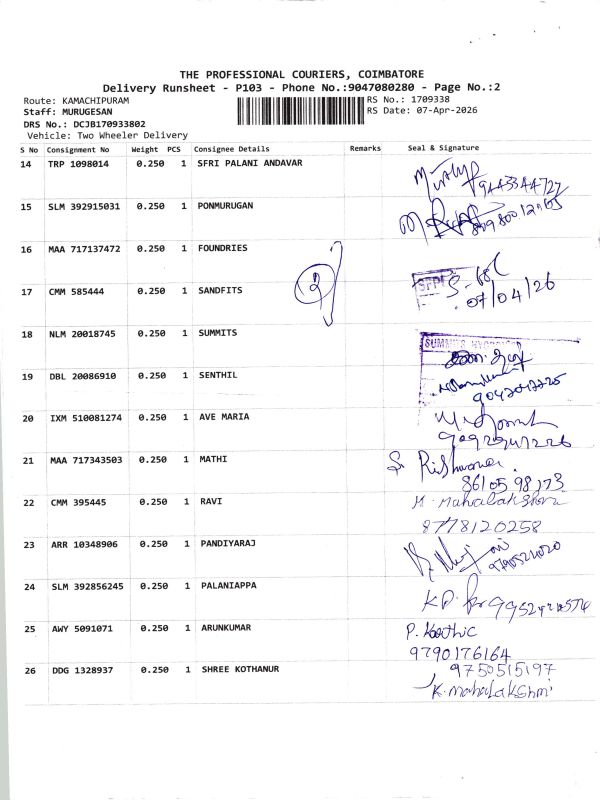 THE PROFESSIONAL COURIERS, COIMBATORE
Delivery Runsheet - P103 - Phone No.:9047080280 - Page No.:2
Route: KAMACHIPURAM
RS No.: 1709338
Staff: MURUGESAN
RS Date: 07-Apr-2026
DRS No.: DCJB170933802
Vehicle: Two Wheeler Delivery
S No Consignment No Weight PCS Consignee Details Remarks Seal & Signature
14 TRP 1098014 0.250 1 SFRI PALANI ANDAVAR
15 SLM 392915031 0.250 1 PONMURUGAN
16 MAA 717137472 0.250 1 FOUNDRIES
17 CMM 585444 0.250 1 SANDFITS
2
07/04/26
18 NLM 20018745 0.250 1 SUMMITS
SUMMITS
19 DBL 20086910 0.250 1 SENTHIL
20 IXM 510081274 0.250 1 AVE MARIA
21 MAA 717343503 0.250 1 MATHI
8610598173
22 CMM 395445 0.250 1 RAVI M. Mahalakshmi
8778120258
23 ARR 10348906 0.250 1 PANDIYARAJ
24 SLM 392856245 0.250 1 PALANIAPPA
25 AWY 5091071 0.250 1 ARUNKUMAR P. Karthic
9790176164
26 DDG 1328937 0.250 1 SHREE KOTHANUR 9750515197
K. mahalakshmi